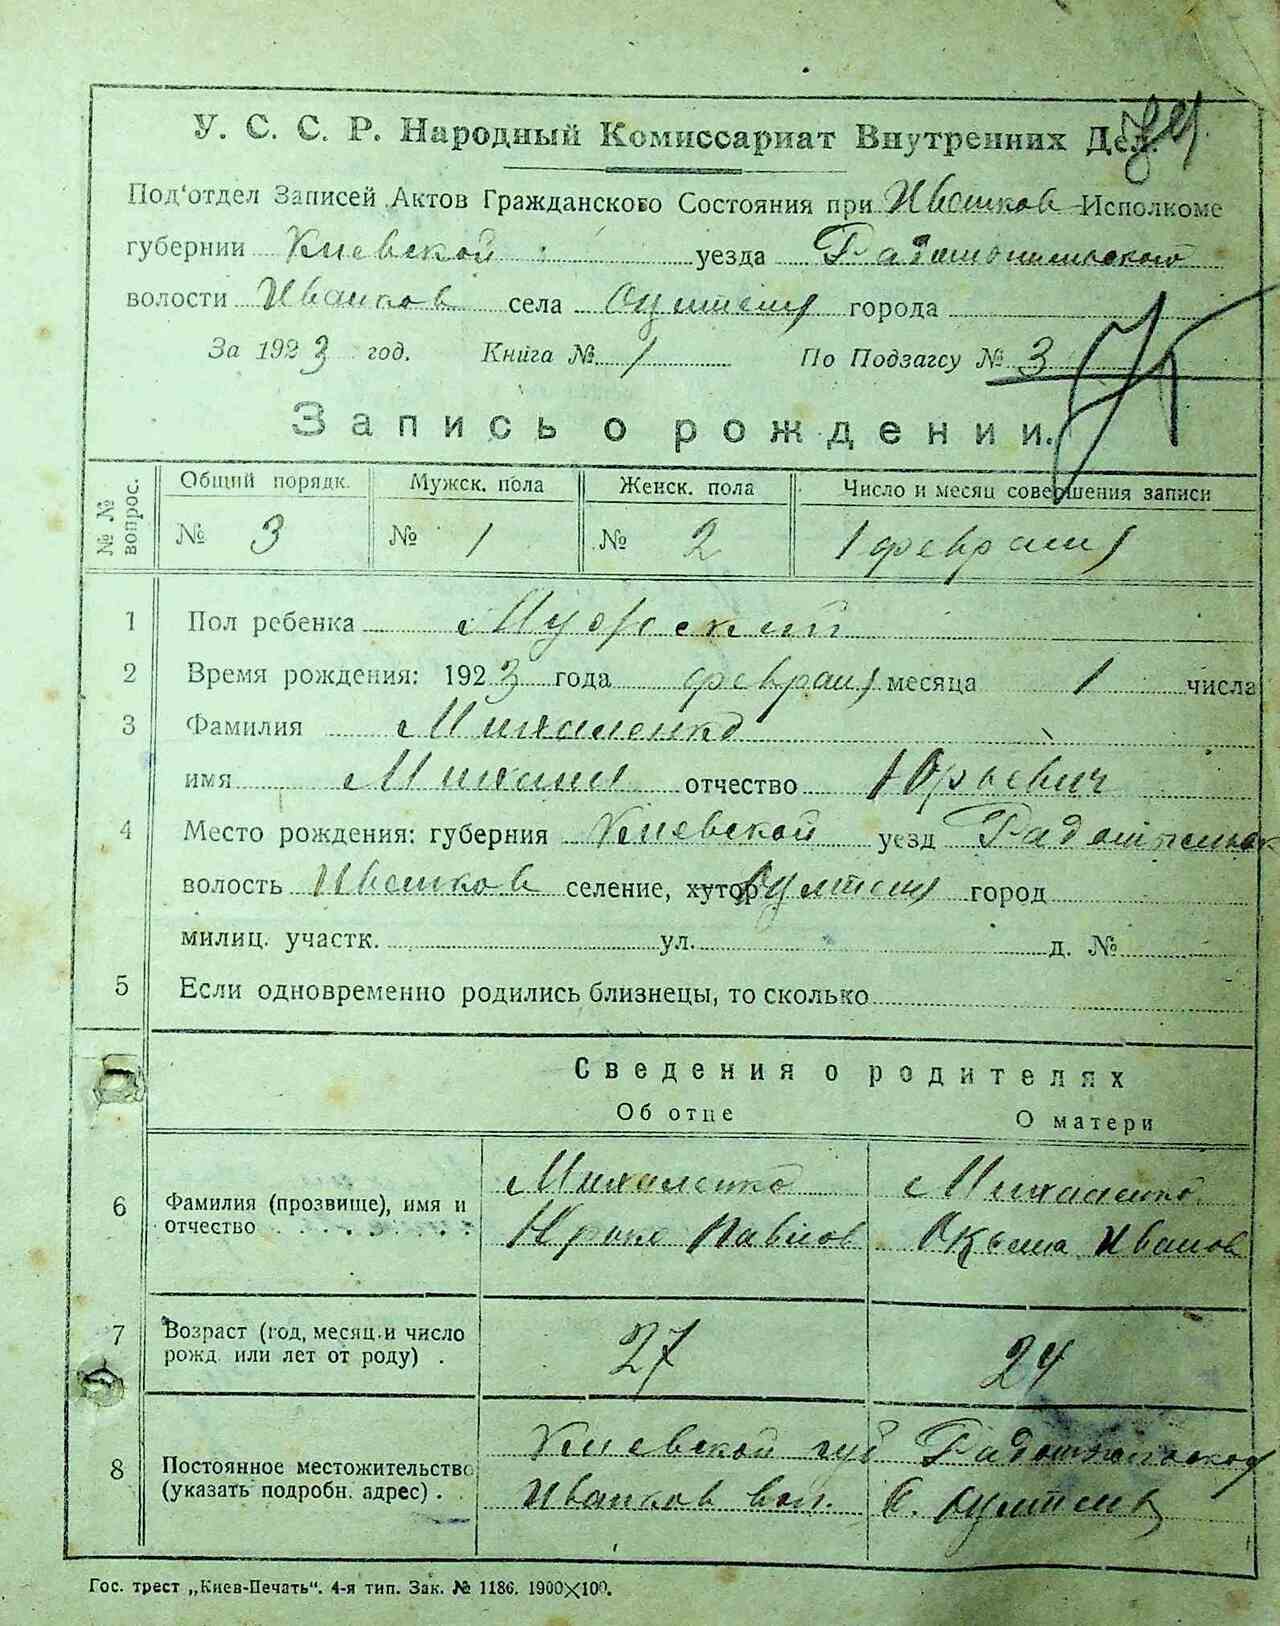 У. С. С. Р. Народный Комиссариат Внутренних Дел.
Под'отдел Записей Актов Гражданского Состояния при Иванков Исполкоме
губернии Киевской уезда Радомысльского
волости Иванков села города
За 1923 год. Книга № 1 По Подзагсу № 3
75
Запись о рождении.
№№ вопрос. Общий порядк. Мужск. пола Женск. пола Число и месяц совершения записи
№ 3 № 1 № 2 1 февраля
1 Пол ребенка Мужской
2 Время рождения: 1923 года февраля месяца 1 числа
3 Фамилия Михаленко
имя Михаил отчество Юрьевич
4 Место рождения: губерния Киевской уезд
волость Иванков селение, хутор город
милиц. участк. ул. д. №
5 Если одновременно родились близнецы, то сколько
Сведения о родителях
Об отце О матери
6 Фамилия (прозвище), имя и отчество
Михаленко Михаленко
Павлов Иванов
7 Возраст (год, месяц и число рожд. или лет от роду) .
27 24
8 Постоянное местожительство (указать подробн. адрес) .
Киевской губ
Иванков вол. с.
Гос. трест „Киев-Печать“. 4-я тип. Зак. № 1186. 1900×100.